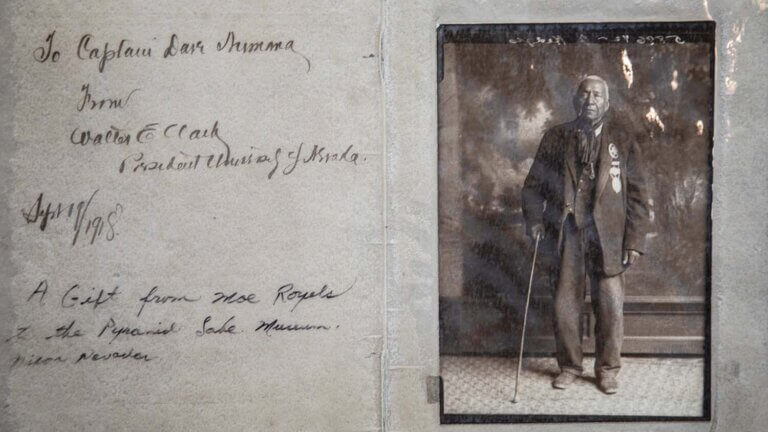 To Captain Dave Numana
From
Walter E Clark
President University of Nevada.
Sept 19/1918
A Gift from Moe Royels
to the Pyramid Lake Museum.
Nixon Nevada